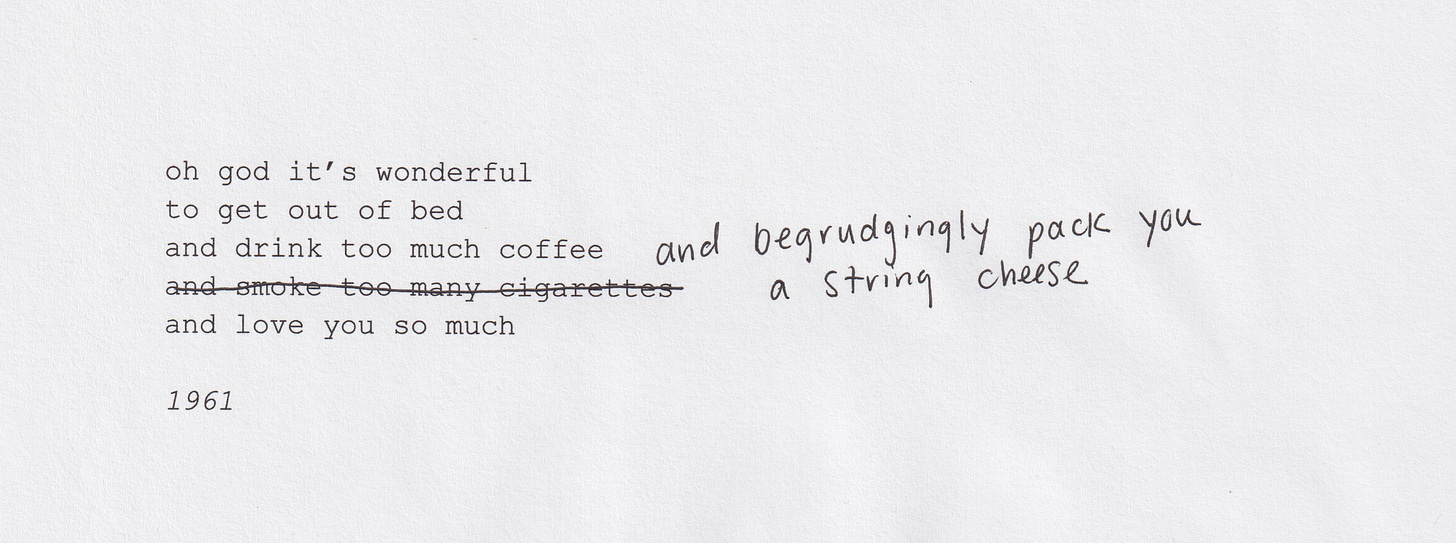 oh god it’s wonderful
to get out of bed
and drink too much coffee
and begrudgingly pack you
a string cheese
and smoke too many cigarettes
and love you so much
1961